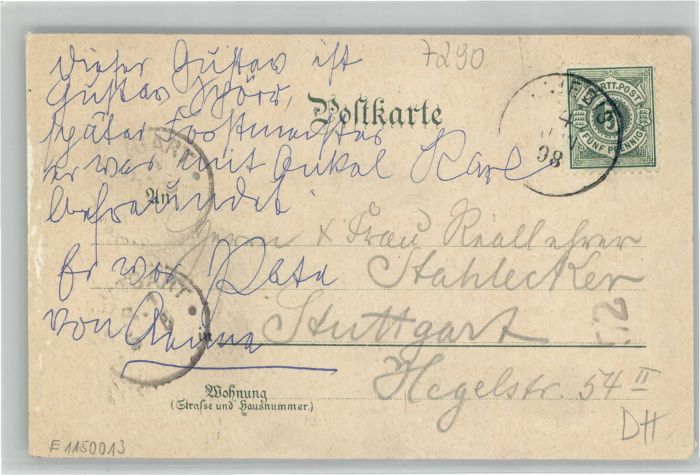 7290
Dieser Gustav ist
Gustav
Postkarte
WÜRTT. POST
5
FÜNF PFENNIG
98
später Forstmeister
er war mit Onkel Karl
befreundet
An
Herrn & Frau Reallehrer
Er war Pate Stahlecker
von in Stuttgart
Wohnung
(Strasse und Hausnummer.)
Hegelstr. 54 II
DH
E 1150013